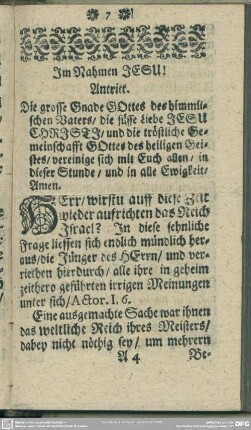 7
Im Nahmen JESU!
Antritt.
Die grosse Gnade GOttes des himmli-
schen Vaters/ die süsse Liebe JESU
CHRISTI/ und die tröstliche Ge-
meinschafft GOttes des heiligen Gei-
stes/ vereinige sich mit Euch allen/ in
dieser Stunde/ und in alle Ewigkeit/
Amen.
HErr/ wirstu auff diese Zeit
wieder auffrichten das Reich
Israel? In diese sehnliche
Frage liessen sich endlich mündlich her-
aus/ die Jünger des HErrn/ und ver-
riethen hierdurch/ alle ihre in geheim
zeithero geführten irrigen Meinungen
unter sich/ Actor. I. 6.
Eine ausgemachte Sache war ihnen
das weltliche Reich ihres Meisters/
dabey nicht nöthig sey/ um mehrern
A 4 Be-